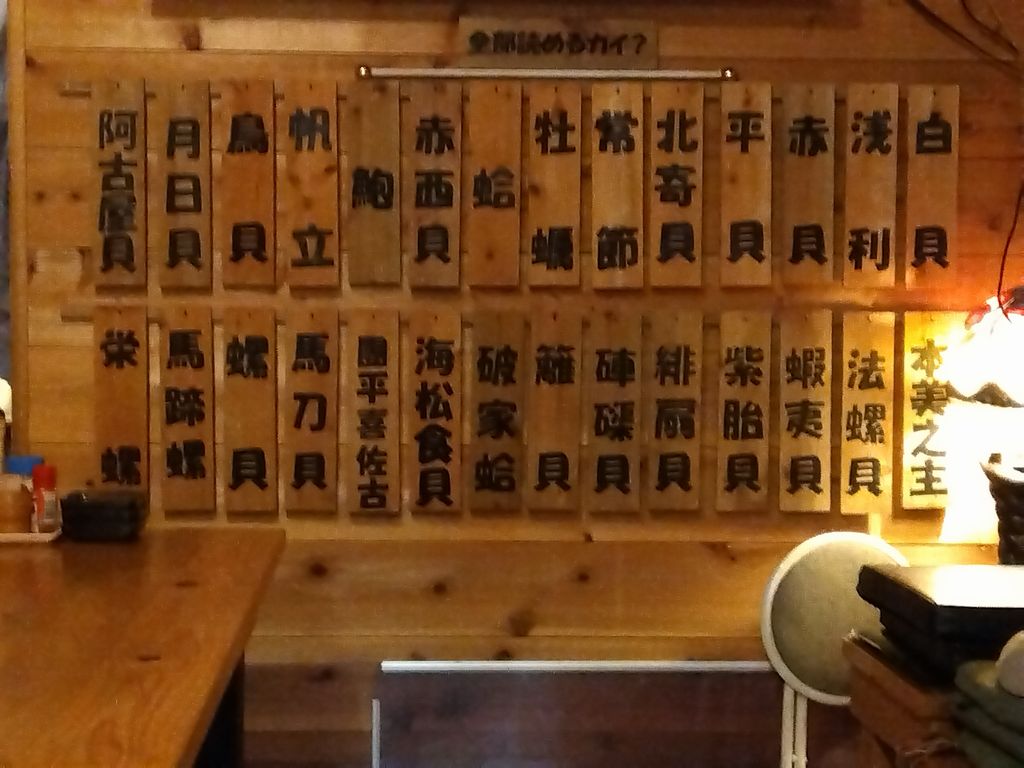 全部読めるカイ?
白貝
浅利
赤貝
平貝
北寄貝
常節
牡蠣
蛤
赤西貝
鮑
帆立
鳥貝
月日貝
阿古屋貝
本美之主
法螺貝
蝦夷貝
紫胎貝
緋扇貝
硨磲貝
籬貝
破家蛤
海松食貝
團平喜佐古
馬刀貝
螺貝
馬蹄螺
栄螺